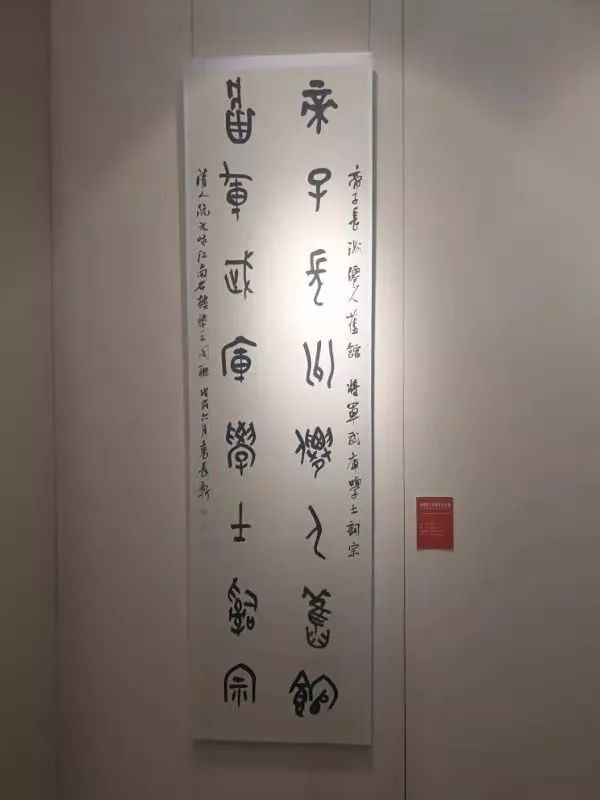 帝子長洲僊人舊館
將軍武庫學士詞宗
帝子長洲僊人舊館 將軍武庫學士詞宗
清人阮元咏江南名樓滕王閣聯 戊戌六月